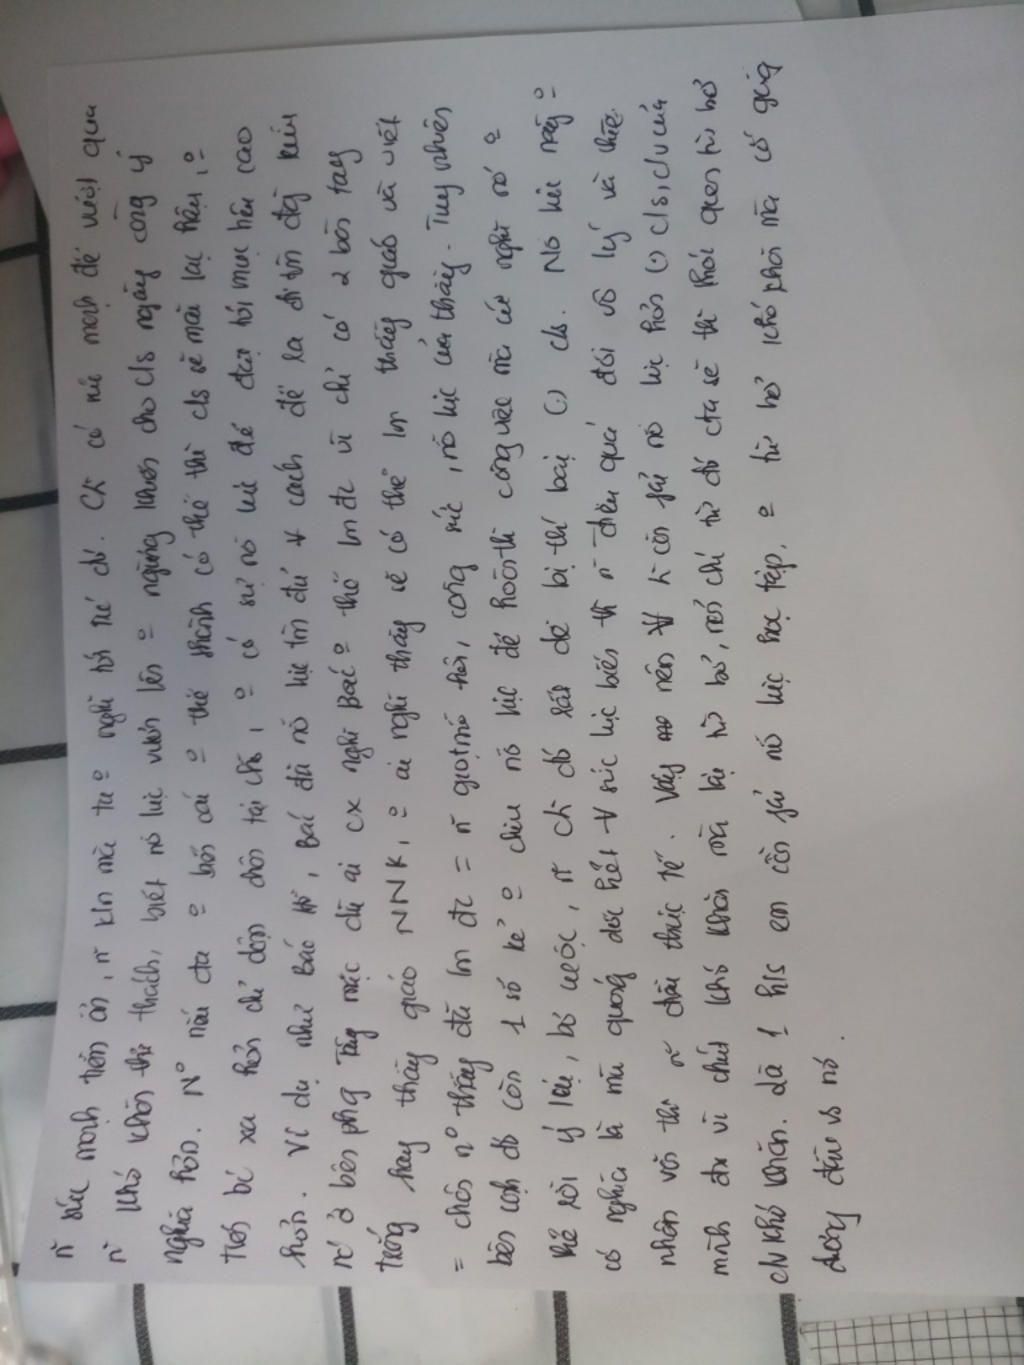 n~ sức mạnh tiềm ẩn, n~ kln mà ta o nghĩ tới trc đó. Ch~ có nó mạnh để vượt qua
n~ khó khăn thử thách, biết nỗ lực vươn lên = ngừng khiến cho c/s ngày càng ý
nghĩa hơn. No nếu cta o biến cái o thể thành có thể thì c/s sẽ mãi lạc hậu, o
tiến bộ xa hơn chỉ dậm chân tại chỗ, o có sự nỗ lực để đạt tới mục tiêu cao
hơn. Ví dụ như Bác Hồ, Bác đã nỗ lực tìm đủ ∀ cách để ra đi tìm đg cứu
nc ở bên phg Tây mặc dù ai cx nghĩ Bác o thể lm đc vì chỉ có 2 bàn tay
trắng hay thầy giáo NNK, o ai nghĩ thầy sẽ có thể lm thầy giáo và viết
= chân no thầy đã lm đc = n~ giọt mồ hôi, công sức, nỗ lực của thầy. Tuy nhiên
bên cạnh đó còn 1 số kẻ o chịu nỗ lực để hoàn thì công việc mà cứ nghĩ nó o
thể rồi ỷ lại, bỏ cuộc, n~ ch~ đó rất dễ bị thất bại (.) c/s. Nỗ lực này =
có nghĩa là mù quáng dốc hết ∀ sức lực biến th~ n~ điều quá đỗi vô lý và thiếu
nhân văn thì n~ điều thực tế. Vậy nên ∀ h~ cần fải nỗ lực hơn (.) c/s, c/v của
mình đx vì chút khó khăn mà lại từ bỏ, nên chỉ từ đó cta sẽ th~ thói quen từ bỏ
c/v khó khăn. Là 1 h/s em cần fải nỗ lực học tập, o từ bỏ khó khăn mà cố gắng
đương đầu vs nó.